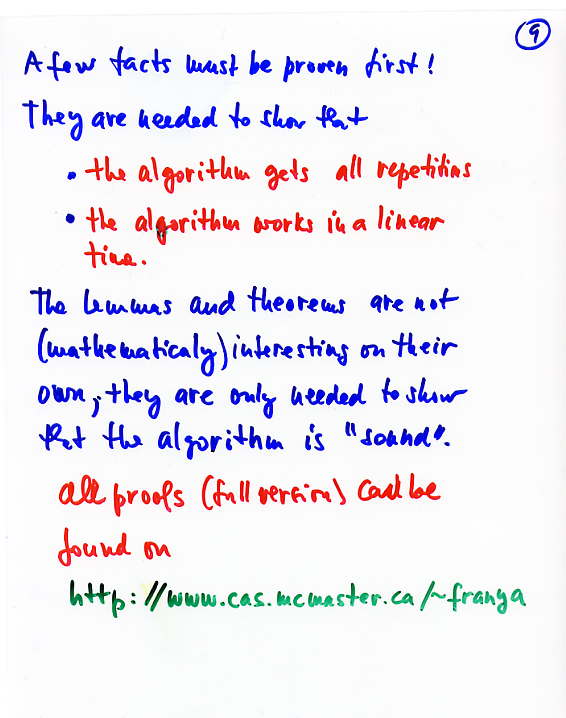 9
A few facts must be proven first!
They are needed to show that
• the algorithm gets all repetitions
• the algorithm works in a linear
time.
The lemmas and theorems are not
(mathematicaly) interesting on their
own, they are only needed to show
that the algorithm is "sound".
all proofs (full version) can be
found on
http://www.cas.mcmaster.ca/~franya